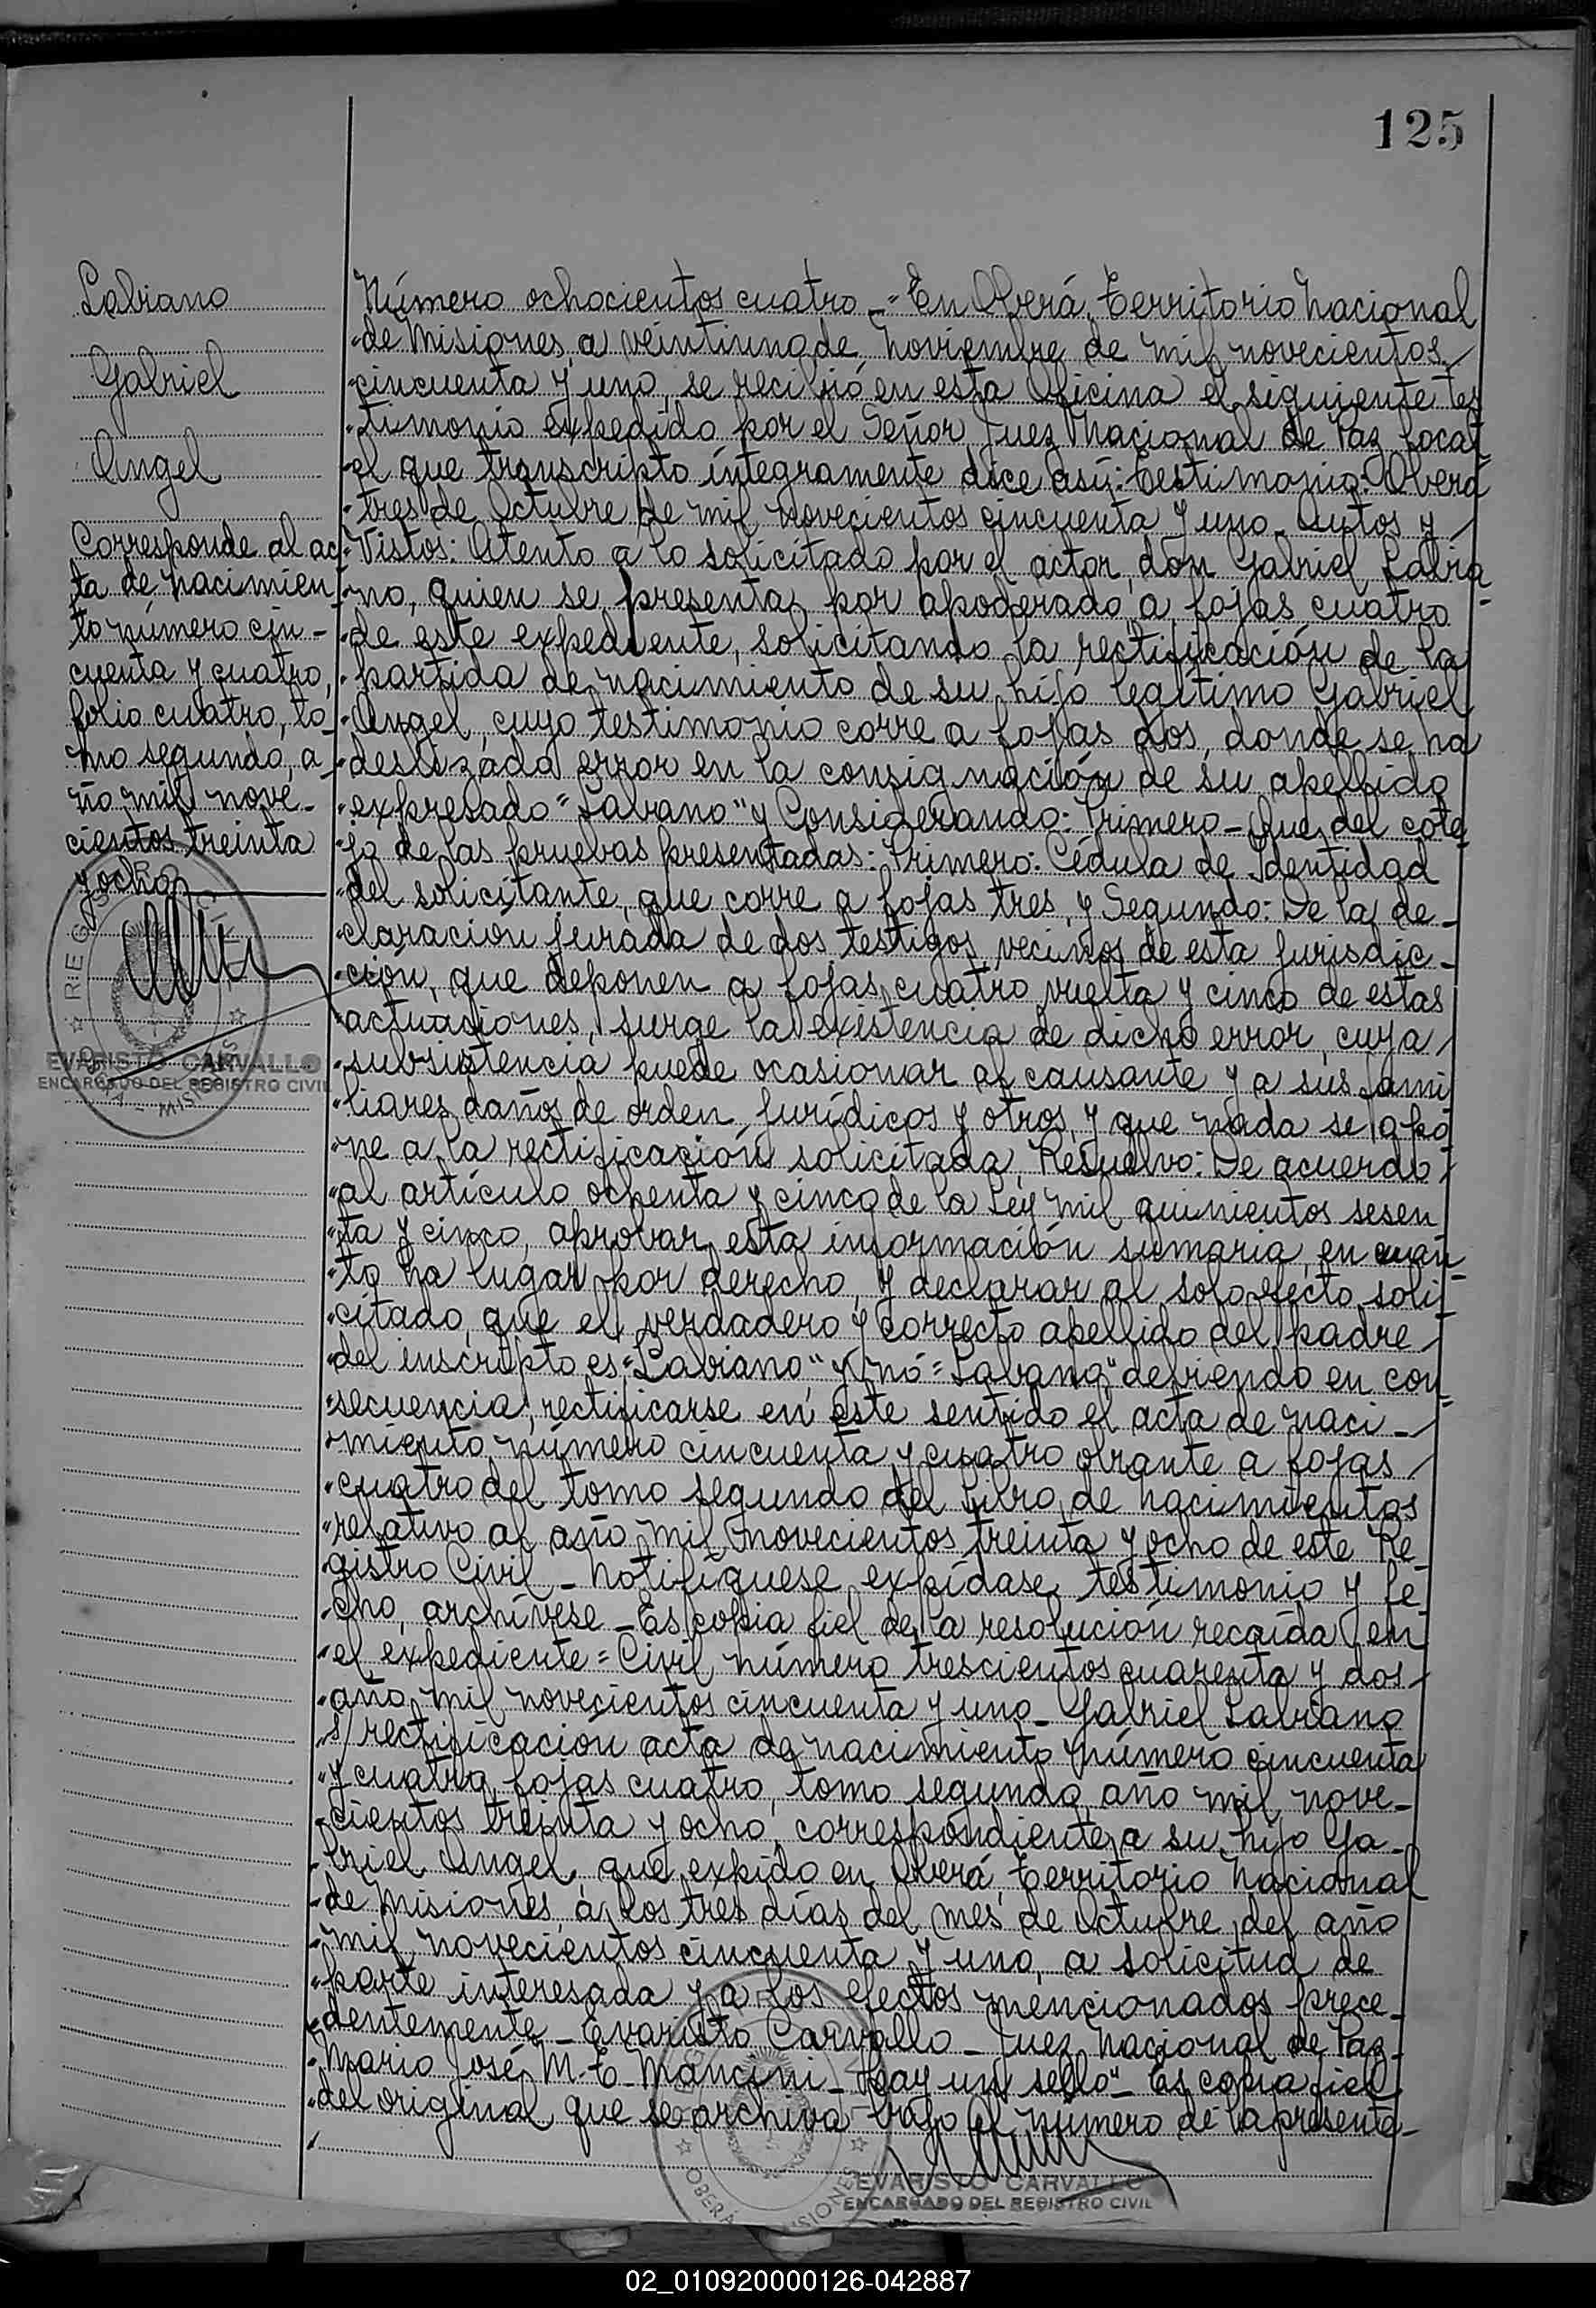 125
Labiano
Gabriel
Angel
Corresponde al ac-
ta de nacimien-
to número cin-
cuenta y cuatro,
folio cuatro, to-
mo segundo, a-
ño mil nove-
cientos treinta
y ocho
REGISTRO CIVIL
OBERÁ - MISIONES
EVARISTO CARVALLO
ENCARGADO DEL REGISTRO CIVIL
Número ochocientos cuatro.-"En Oberá, Territorio Nacional
"de Misiones, a veintiuno de Noviembre de mil novecientos
"cincuenta y uno, se recibió en esta Oficina el siguiente tes
"timonio expedido por el Señor Juez Nacional de Paz local
"el que transcripto íntegramente dice así: Testimonio: Oberá
"tres de Octubre de mil novecientos cincuenta y uno. Autos y
"Vistos: Atento a lo solicitado por el actor, don Gabriel Labia-
"no, quien se presenta por apoderado, a fojas cuatro
"de este expediente, solicitando la rectificación de la
"partida de nacimiento de su hijo legítimo Gabriel
"Angel, cuyo testimonio corre a fojas dos, donde se ha
"deslizado error en la consignación de su apellido
"expresado "Labano" y Considerando: Primero - Que del cote
"jo de las pruebas presentadas: Primero: Cédula de Identidad
"del solicitante, que corre a fojas tres, y Segundo: De la de-
"claración jurada de dos testigos vecinos de esta jurisdic-
"ción, que deponen a fojas cuatro vuelta y cinco de estas
"actuaciones, surge la existencia de dicho error, cuya
"subsistencia puede ocasionar al causante y a sus fami
"liares daños de orden jurídicos y otros, y que nada se opo
"ne a la rectificación solicitada, Resuelvo: De acuerdo
"al artículo ochenta y cinco de la Ley mil quinientos sesen
"ta y cinco, aprobar esta información sumaria, en cuan-
"to ha lugar por derecho, y declarar al solo efecto soli-
"citado, que el verdadero y correcto apellido del padre
"del inscripto es "Labiano" y nó "Labano" debiendo en con-
"secuencia, rectificarse en este sentido el acta de naci-
"miento número cincuenta y cuatro obrante a fojas
"cuatro del tomo segundo del Libro de nacimientos
"relativo al año mil novecientos treinta y ocho de este Re-
"gistro Civil - Notifíquese, expídase testimonio y fe
"cho, archívese - Es copia fiel de la resolución recaída en
"el expediente = Civil número trescientos cuarenta y dos
"año mil novecientos cincuenta y uno - Gabriel Labiano
"s/ rectificación acta de nacimiento número cincuenta
"y cuatro, fojas cuatro, tomo segundo, año mil nove-
"cientos treinta y ocho, correspondiente a su hijo Ga-
"briel Angel, que expido en Oberá, Territorio Nacional
"de Misiones, a los tres días del mes de Octubre del año
"mil novecientos cincuenta y uno, a solicitud de
"parte interesada y a los efectos mencionados prece-
"dentemente - Evaristo Carvallo - Juez Nacional de Paz -
"Mario José M. E. Mancini - Hay un sello" - Es copia fiel
"del original que se archiva bajo el número de la presente -
OBERÁ MISIONES
EVARISTO CARVALLO
ENCARGADO DEL REGISTRO CIVIL
02_010920000126-042887